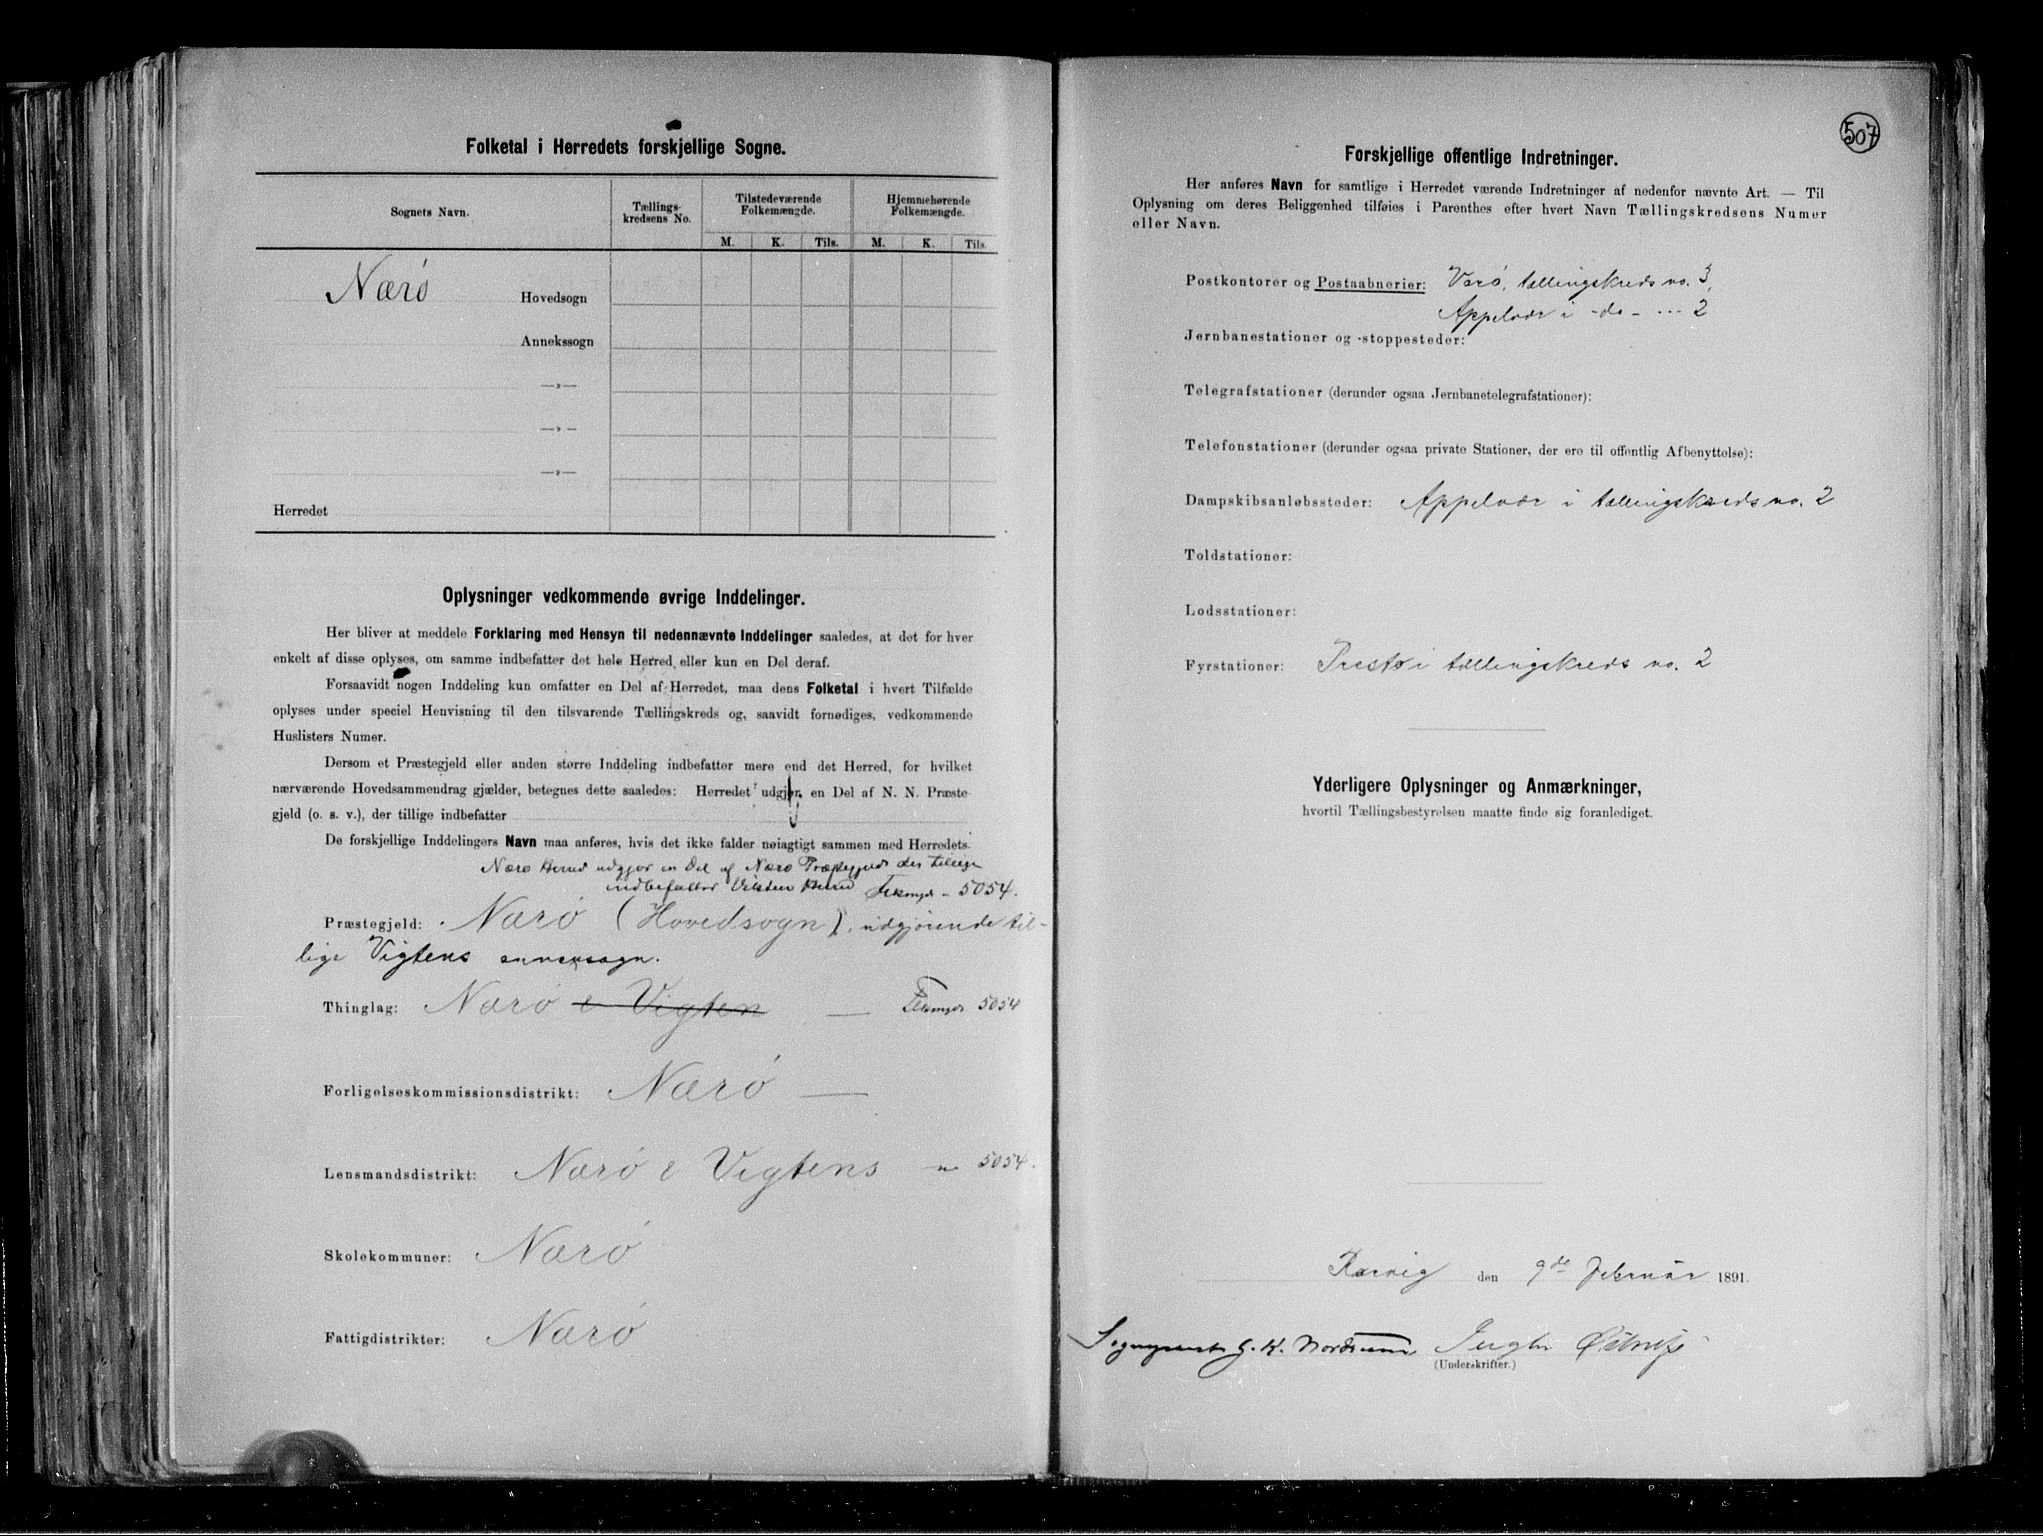 Folketal i Herredets forskjellige Sogne.
Sognets Navn.
Tællings-
kredsens No.
Tilstedeværende
Folkemængde.
Hjemmehørende
Folkemængde.
M. K. Tils. M. K. Tils.
Nærø Hovedsogn
Annekssogn
—»—
—»—
—»—
Herredet
Oplysninger vedkommende øvrige Inddelinger.
Her bliver at meddele Forklaring med Hensyn til nedennævnte Inddelinger saaledes, at det for hver
enkelt af disse oplyses, om samme indbefatter det hele Herred eller kun en Del deraf.
Forsaavidt nogen Inddeling kun omfatter en Del af Herredet, maa dens Folketal i hvert Tilfælde
oplyses under speciel Henvisning til den tilsvarende Tællingskreds og, saavidt fornødiges, vedkommende
Huslisters Numer.
Dersom et Præstegjeld eller anden større Inddeling indbefatter mere end det Herred, for hvilket
nærværende Hovedsammendrag gjælder, betegnes dette saaledes: Herredet udgjør en Del af N. N. Præste-
gjeld (o. s. v.), der tillige indbefatter
De forskjellige Inddelingers Navn maa anføres, hvis det ikke falder nøiagtigt sammen med Herredets.
Nærø Herred udgjør en Del af Nærø Præstegjeld der tillige
indbefatter Herred 5054.
Præstegjeld: Nærø (Hovedsogn), udgjørende til-
lige Vigtens annexsogn.
Thinglag: Nærø & Vigten — 5054
Forligelseskommissionsdistrikt: Nærø —
Lensmandsdistrikt: Nærø & Vigtens 5054.
Skolekommuner: Nærø
Fattigdistrikter: Nærø
507
Forskjellige offentlige Indretninger.
Her anføres Navn for samtlige i Herredet værende Indretninger af nedenfor nævnte Art. — Til
Oplysning om deres Beliggenhed tilføies i Parenthes efter hvert Navn Tællingskredsens Numer
eller Navn.
Postkontorer og Postaabnerier: Værø, tællingskreds no. 3,
Appelvær i -do- ... 2
Jernbanestationer og -stoppesteder:
Telegrafstationer (derunder ogsaa Jernbanetelegrafstationer):
Telefonstationer (derunder ogsaa private Stationer, der ere til offentlig Afbenyttelse):
Dampskibsanløbssteder: Appelvær i tællingskreds no. 2
Toldstationer:
Lodsstationer:
Fyrstationer: Prestø i tællingskreds no. 2
Yderligere Oplysninger og Anmærkninger,
hvortil Tællingsbestyrelsen maatte finde sig foranlediget.
Rørvig den 9de Februar 1891.
Sogneprest
(Underskrifter.)